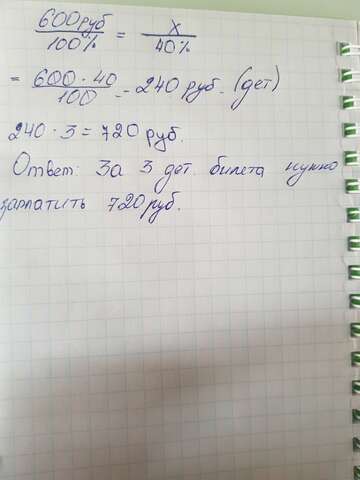 600руб / 100% = x / 40%
= 600 · 40 / 100 = 240 руб. (дет)
240 · 3 = 720 руб.
Ответ: За 3 дет. билета нужно
заплатить 720 руб.